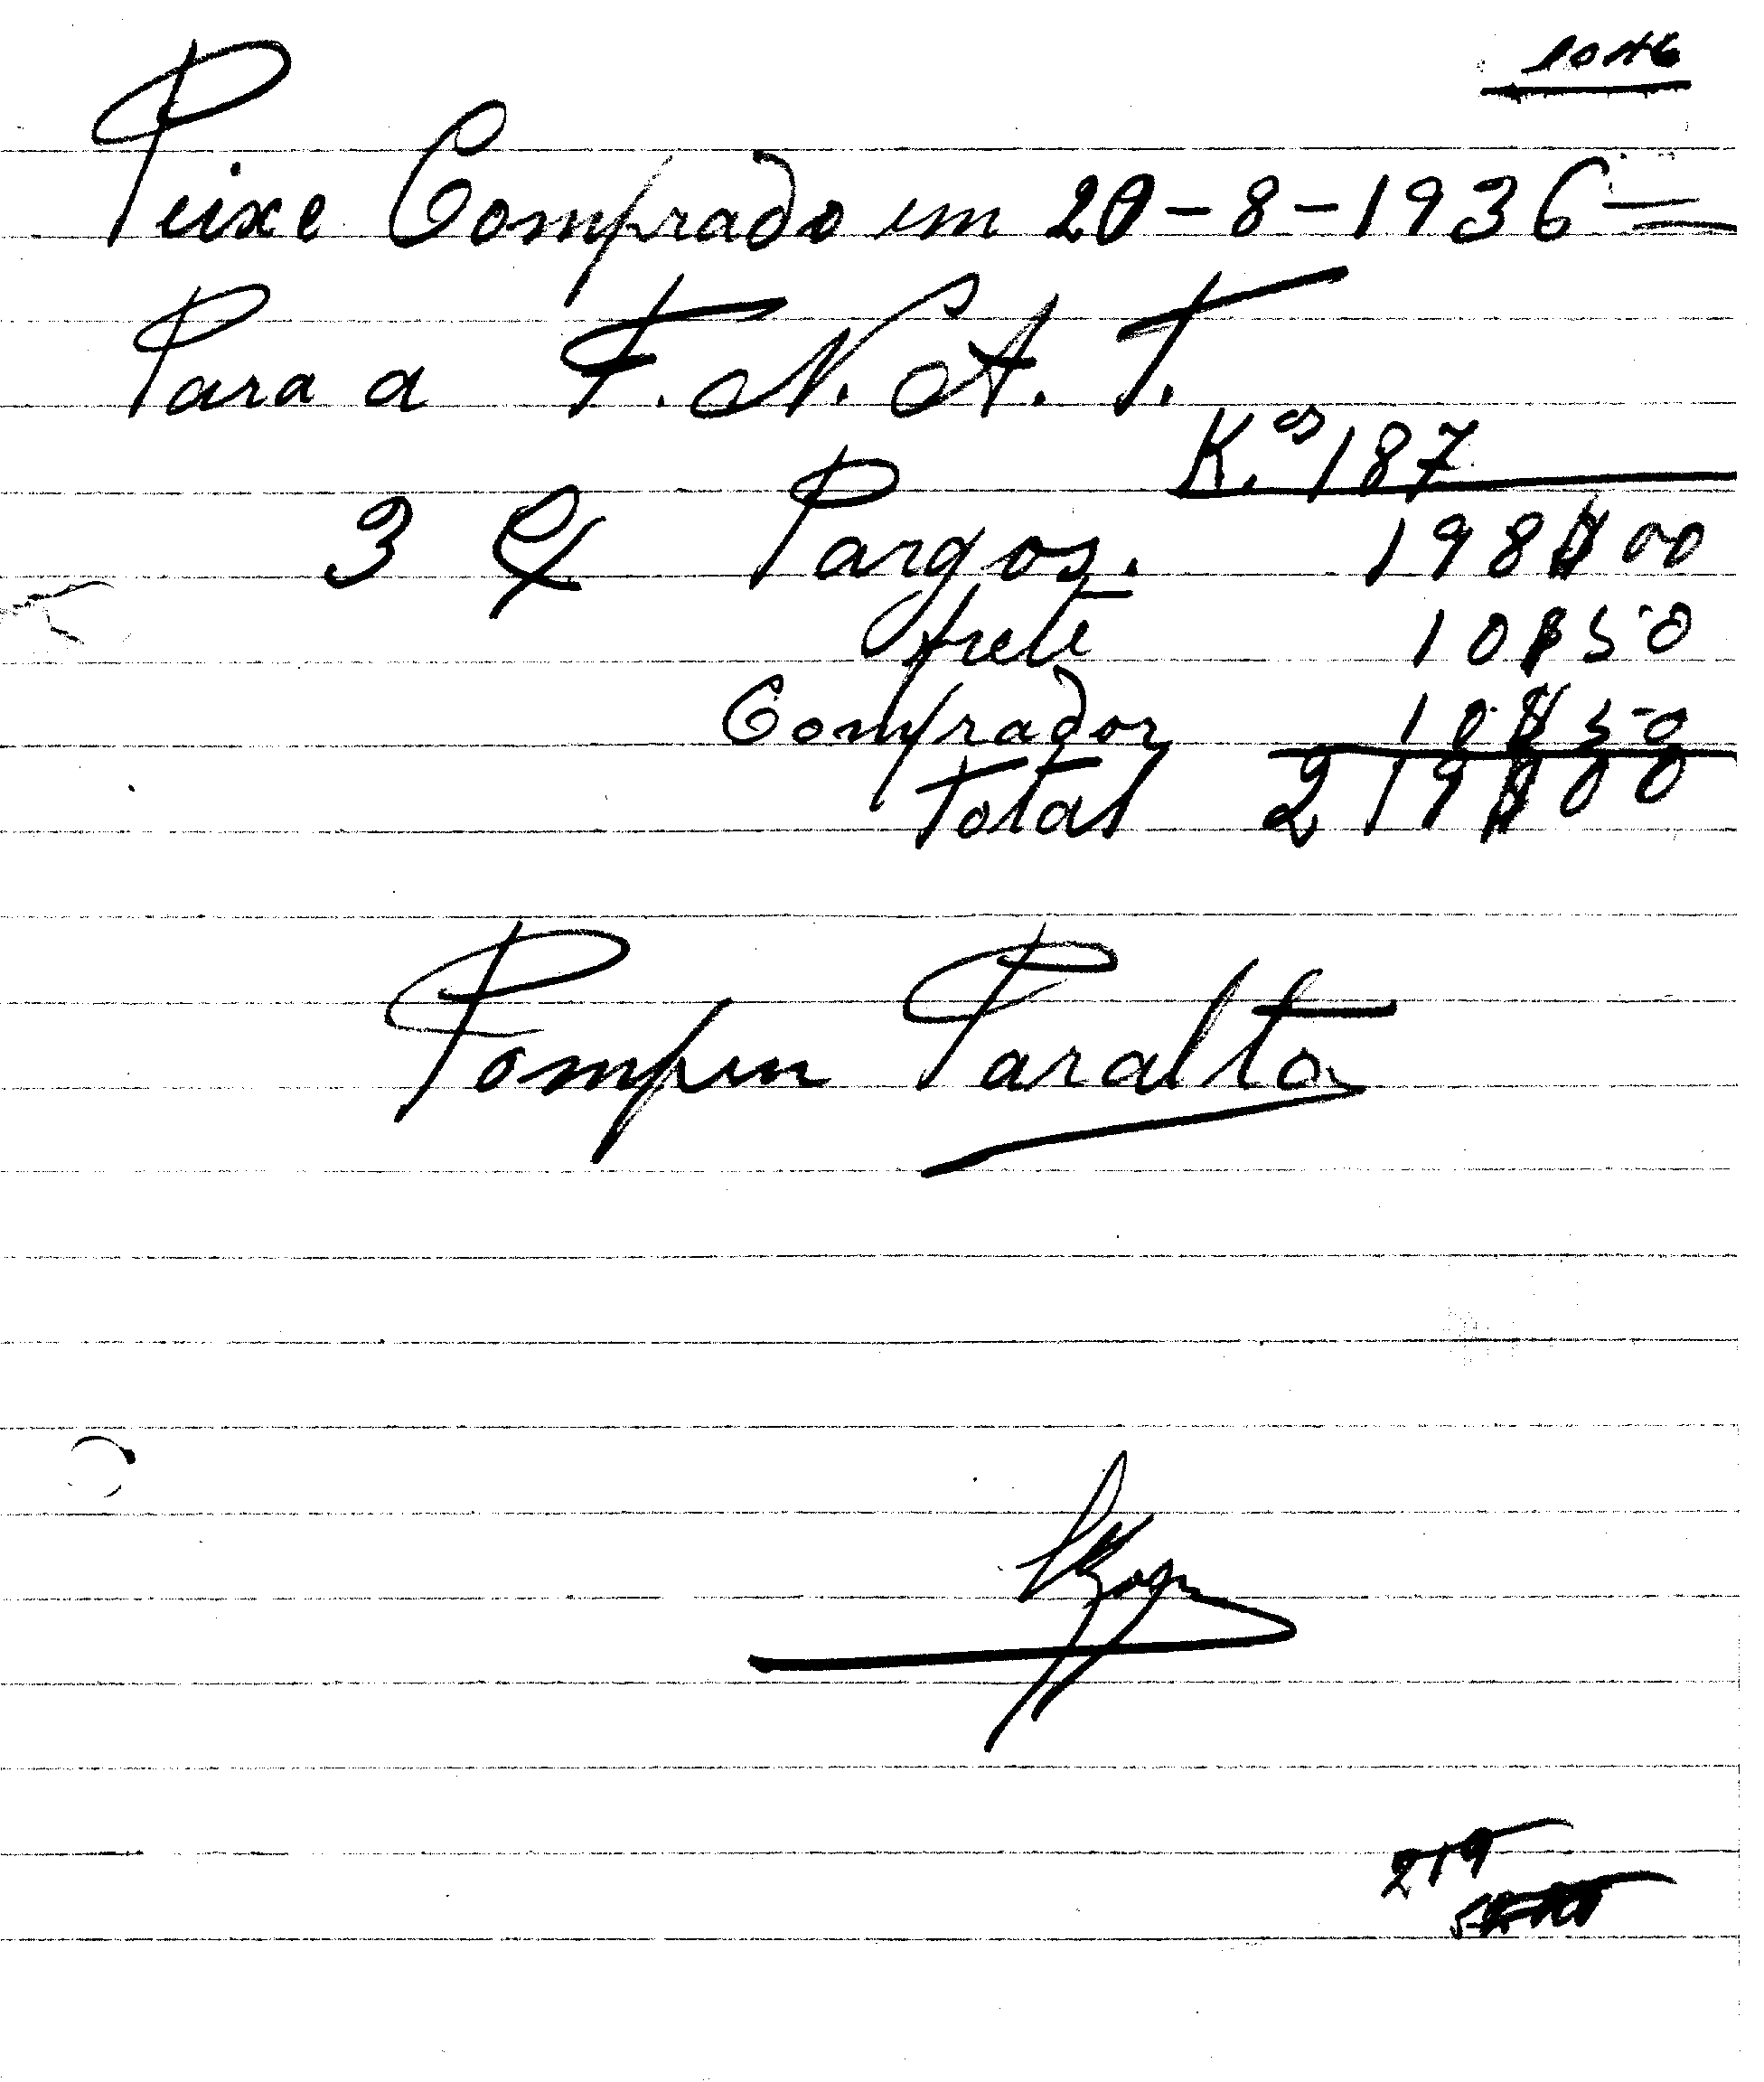 Peixe Comprado em 20-8-1936
Para a F. N. A. T.
K.os 187
3 Cx Pargos. 198$00
frete 10$50
Comprador 10$50
Total 219$00
Paralta
219